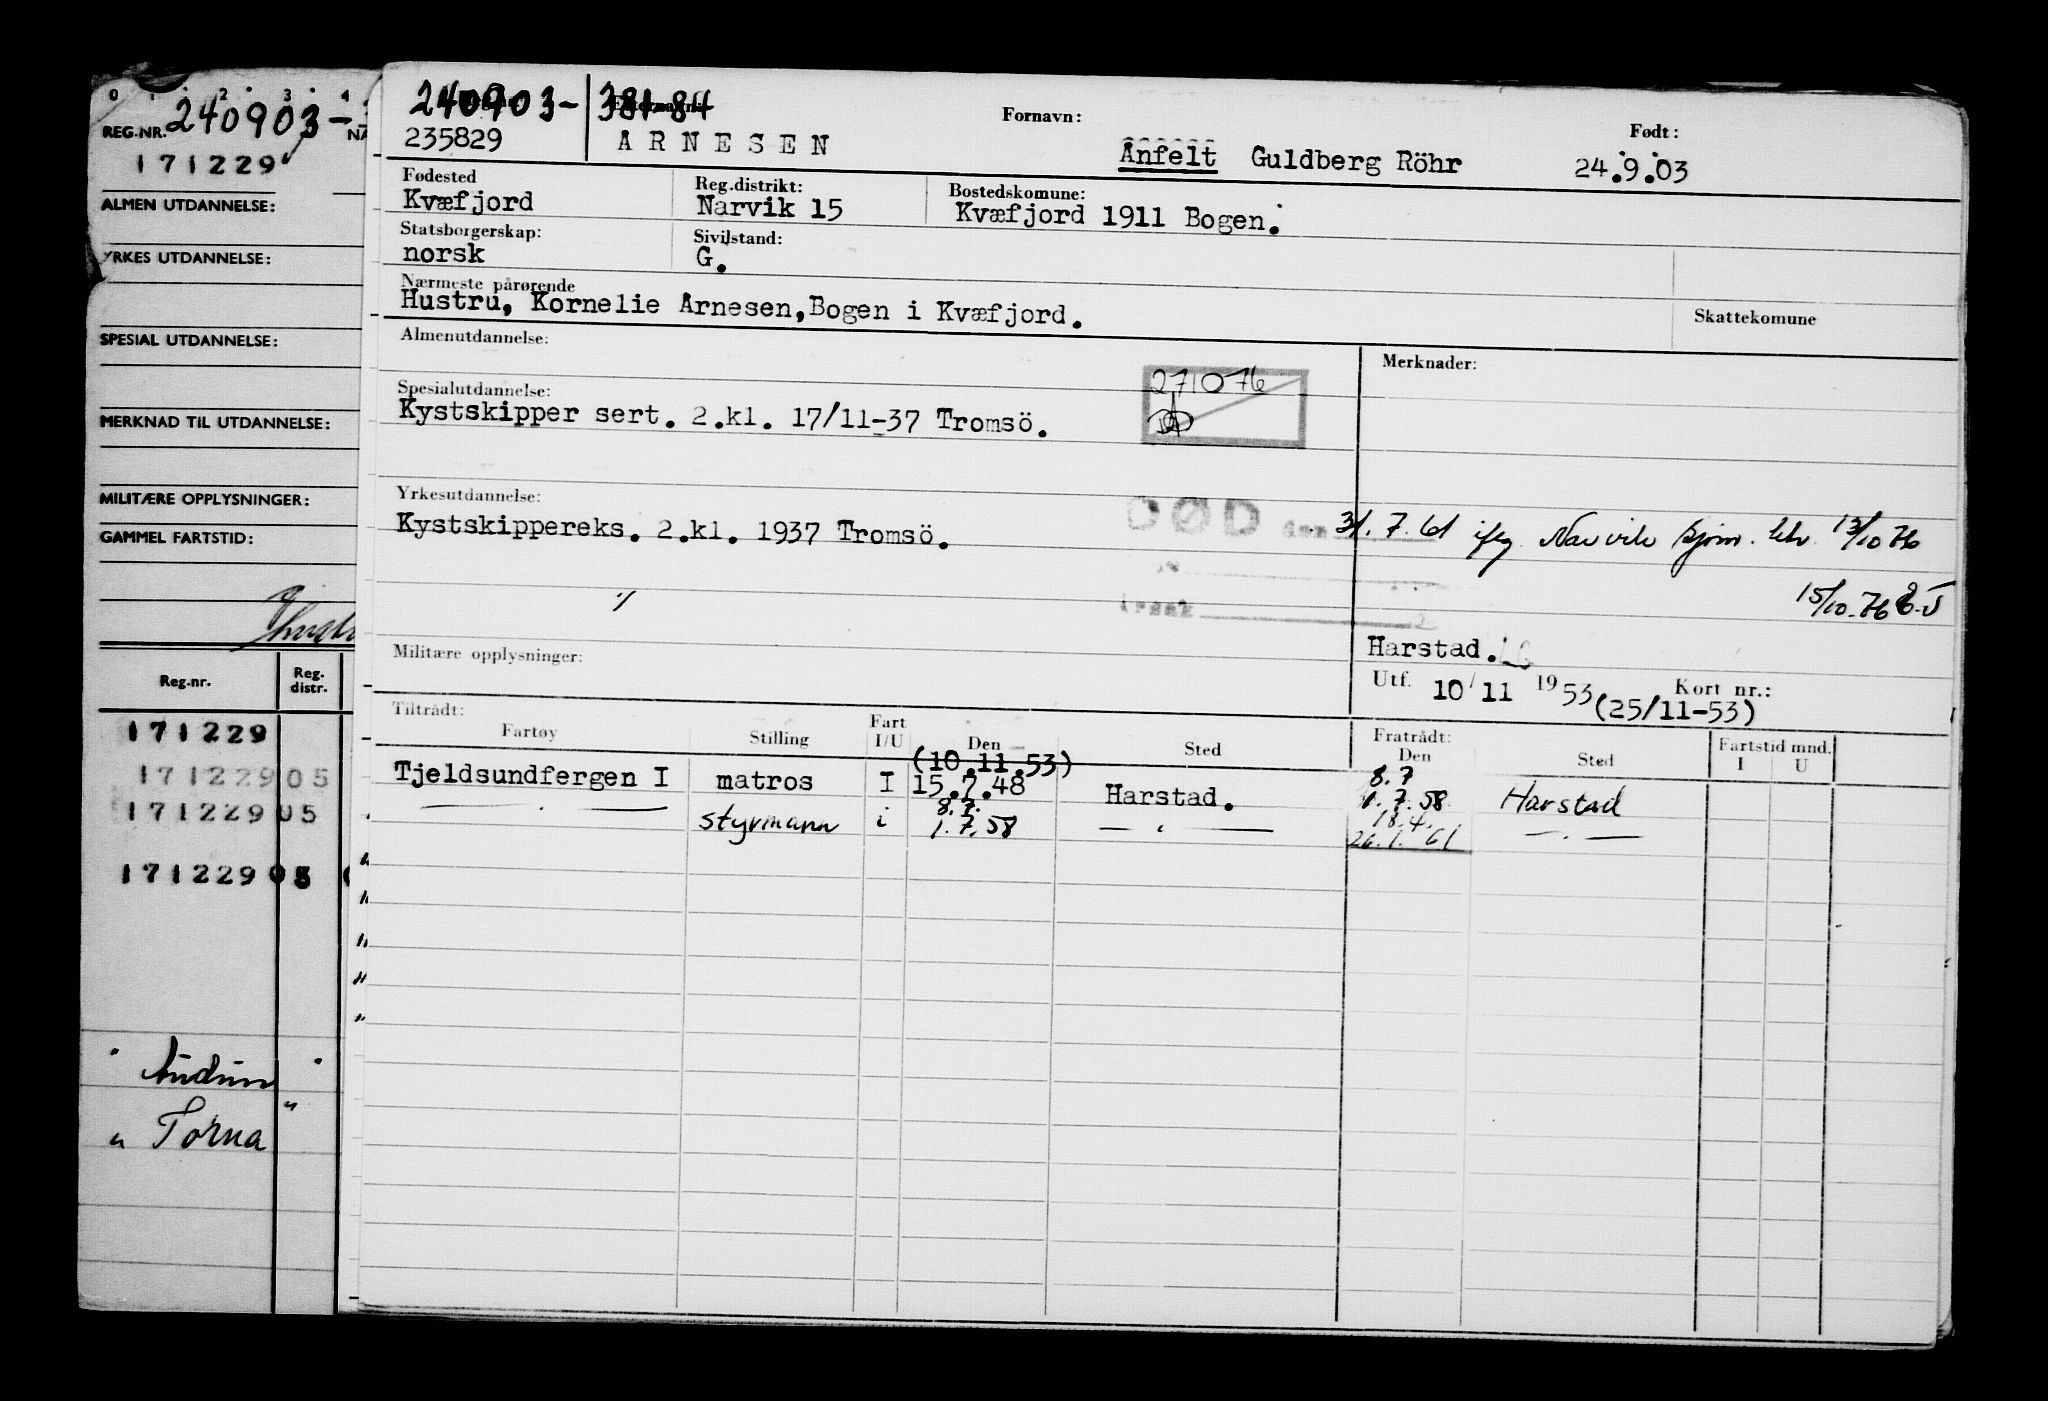 0 1 2 3 4
REG.NR. 240903-
171229
ALMEN UTDANNELSE:
YRKES UTDANNELSE:
SPESIAL UTDANNELSE:
MERKNAD TIL UTDANNELSE:
MILITÆRE OPPLYSNINGER:
GAMMEL FARTSTID:
Reg.nr. Reg. distr.
171229
171229 05
171229 05
171229 05
" Audun "
" Torna "
240903-
235829
ARNESEN
Fornavn:
Anfelt Guldberg Röhr
Født:
24.9.03
Fødested
Kvæfjord
Reg.distrikt:
Narvik 15
Bostedskomune:
Kvæfjord 1911 Bogen.
Statsborgerskap:
norsk
Sivilstand:
G.
Nærmeste pårørende
Hustru, Kornelie Arnesen, Bogen i Kvæfjord.
Skattekomune
Almenutdannelse:
Merknader:
271076
Spesialutdannelse:
Kystskipper sert. 2.kl. 17/11-37 Tromsö.
Yrkesutdannelse:
Kystskippereks. 2.kl. 1937 Tromsö.
DØD den 31.7.61 ifg. Narvik sjøm. ktr. 13/10 76
15/10-76
årsak
Militære opplysninger:
Harstad.
Utf. 10/11 1953 Kort nr.:
(25/11-53)
Tiltrådt:
Fartøy Stilling Fart I/U Den Sted
Fratrådt:
Den Sted Fartstid mnd. I U
(10.11.53)
Tjeldsundfergen I matros I 15.7.48 Harstad. 8.7 1.7.58 Harstad
styrmann i 8.7. 1.7.58 18.4. 26.1.61